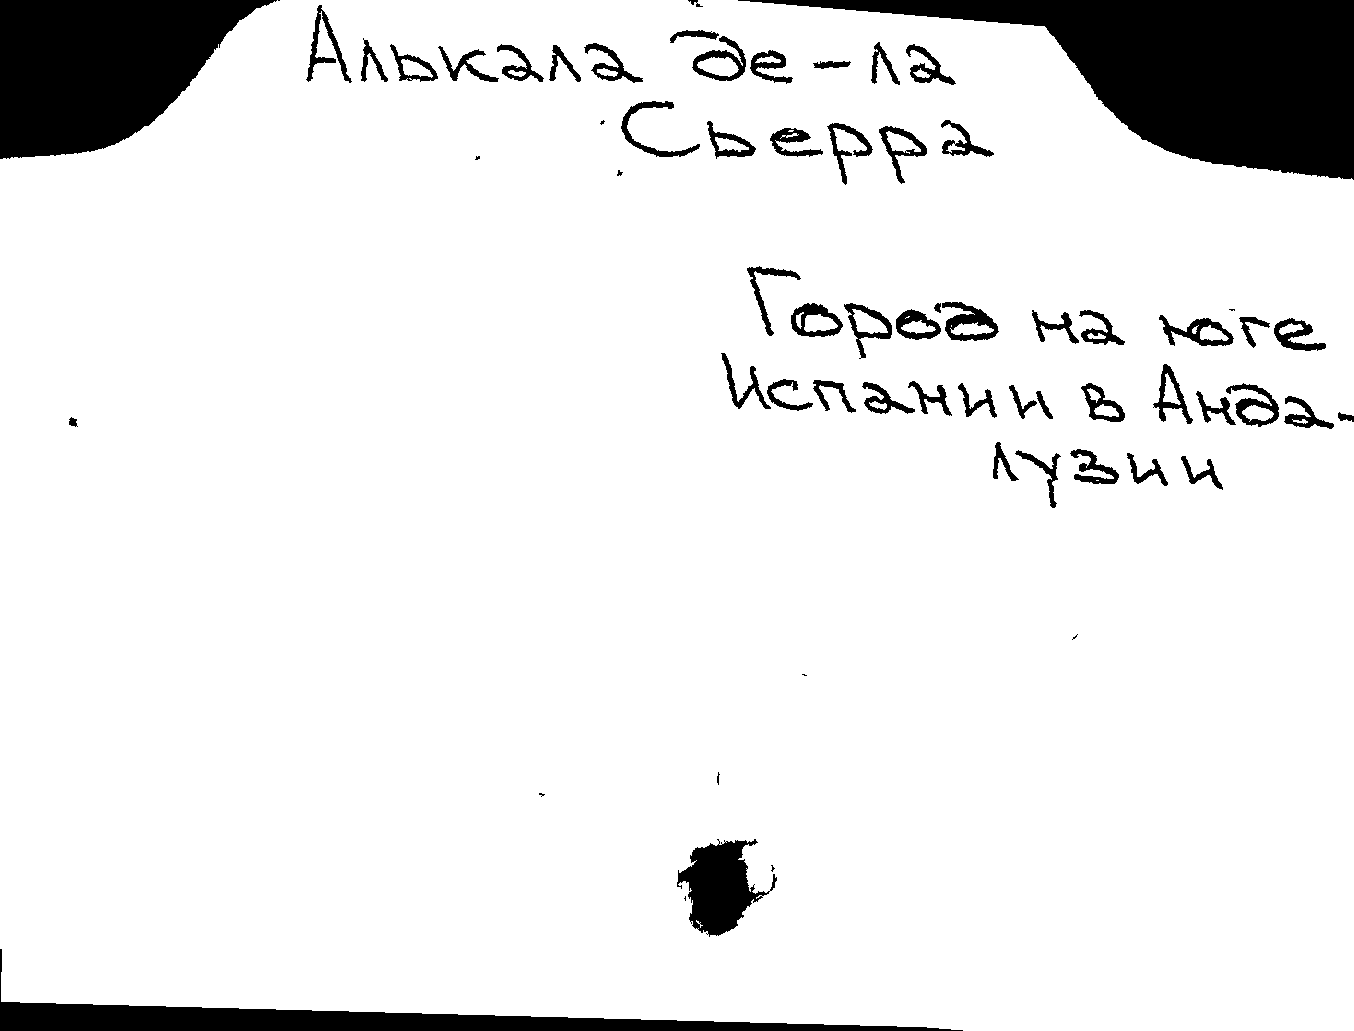 Алькала де-ла
Сьерра
Город на юге
Испании в Анда-
лузии